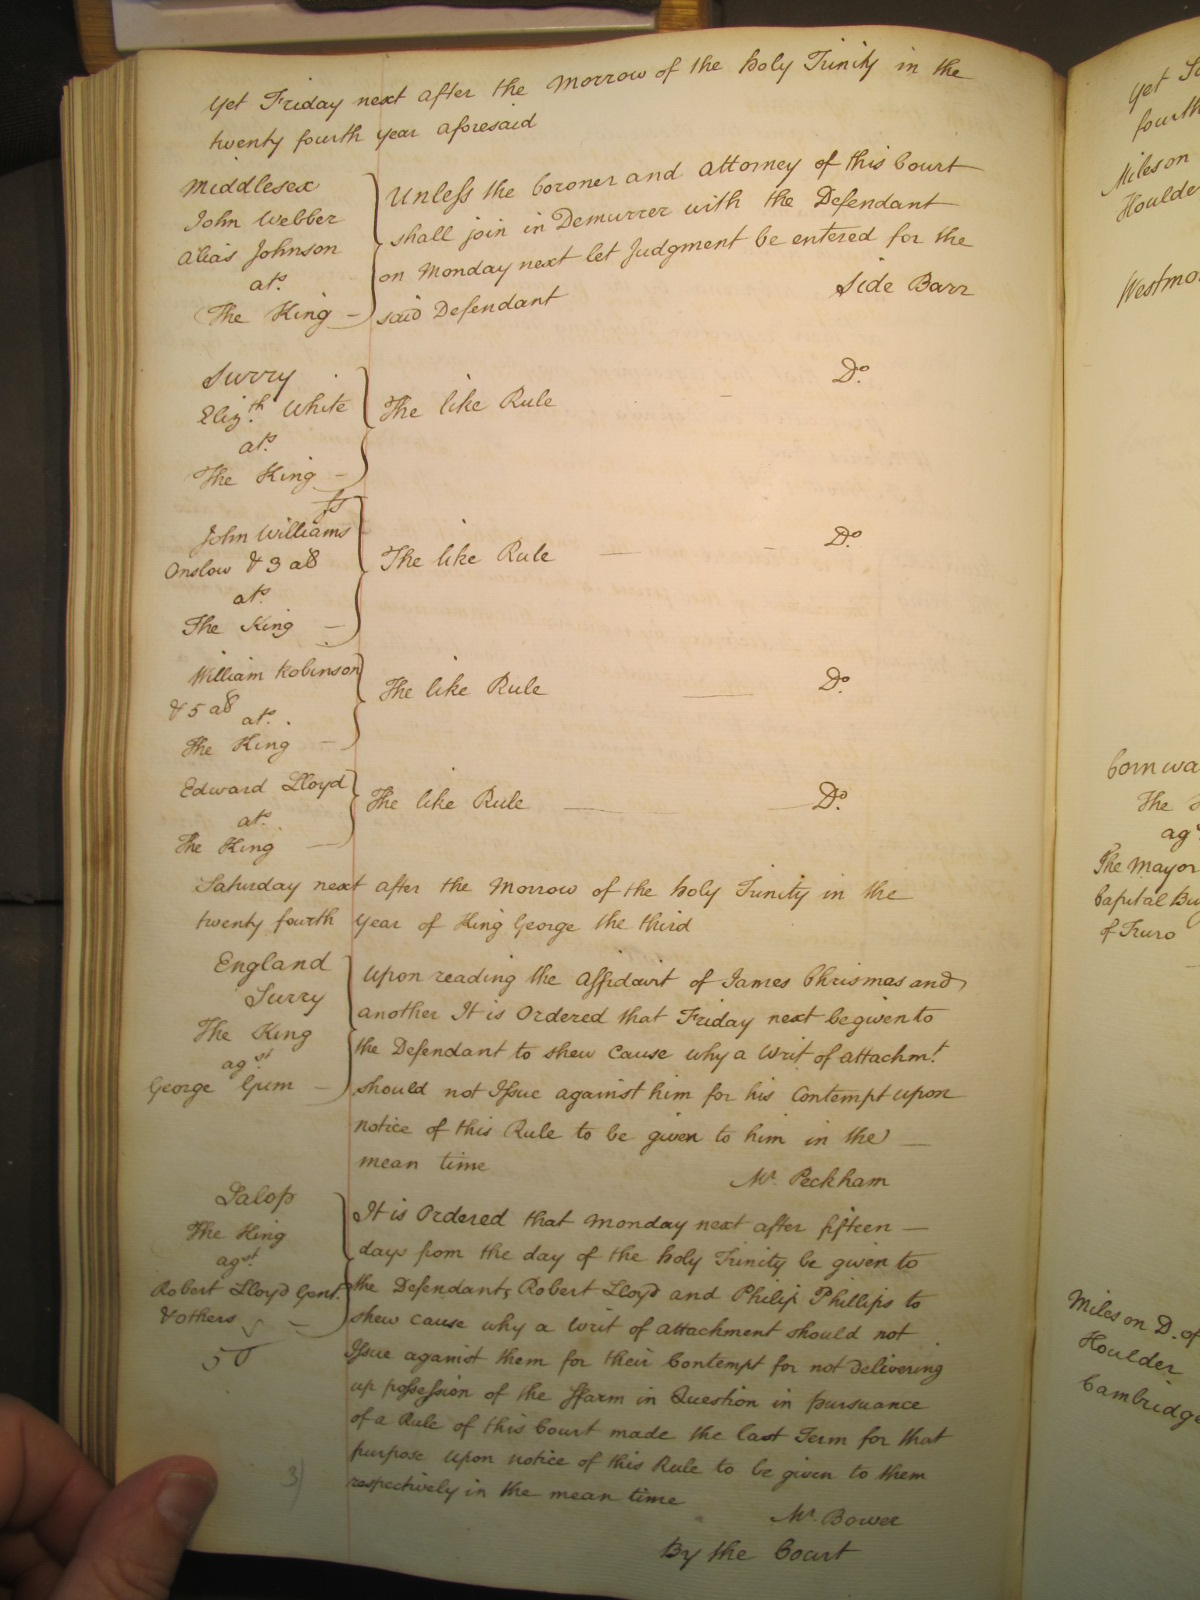 Yet Friday next after the Morrow of the holy Trinity in the
twenty fourth year aforesaid
Middlesex
John Webber
alias Johnson
ats.
The King
Unless the Coroner and Attorney of this Court
shall join in Demurrer with the Defendant
on Monday next let Judgment be entered for the
said Defendant
Side Barr
Surry
Eliz.th White
ats.
The King
The like Rule
Do.
John Williams
Onslow & 3 als
ats.
The King
The like Rule
Do.
William Robinson
& 5 als
ats.
The King
The like Rule
Do.
Edward Lloyd
ats.
The King
The like Rule
Do.
Saturday next after the Morrow of the holy Trinity in the
twenty fourth year of King George the third
England
Surry
The King
agst.
George Gum
Upon reading the Affidavit of James Chrismas and
another It is Ordered that Friday next be given to
the Defendant to shew Cause why a Writ of attachmt.
should not Issue against him for his Contempt upon
notice of this Rule to be given to him in the
mean time
Mr. Peckham
Salop
The King
agst.
Robert Lloyd Gent.
& others
It is Ordered that Monday next after fifteen
days from the day of the holy Trinity be given to
the Defendants Robert Lloyd and Philip Phillips to
shew cause why a Writ of attachment should not
Issue against them for their Contempt for not delivering
up possession of the ffarm in Question in pursuance
of a Rule of this Court made the last Term for that
purpose upon notice of this Rule to be given to them
respectively in the mean time
Mr. Bower
By the Court
3)
Yet
fourth
Miles on
Houlde
Westmo
Cornwa
The
agst
The Mayor
Capital Bu
of Truro
Miles on D. of
Houlder
Cambridge